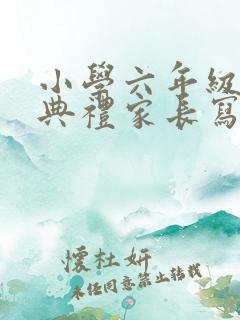 小學六年級
典禮家長寫
懷杜妍
未经同意禁止转载